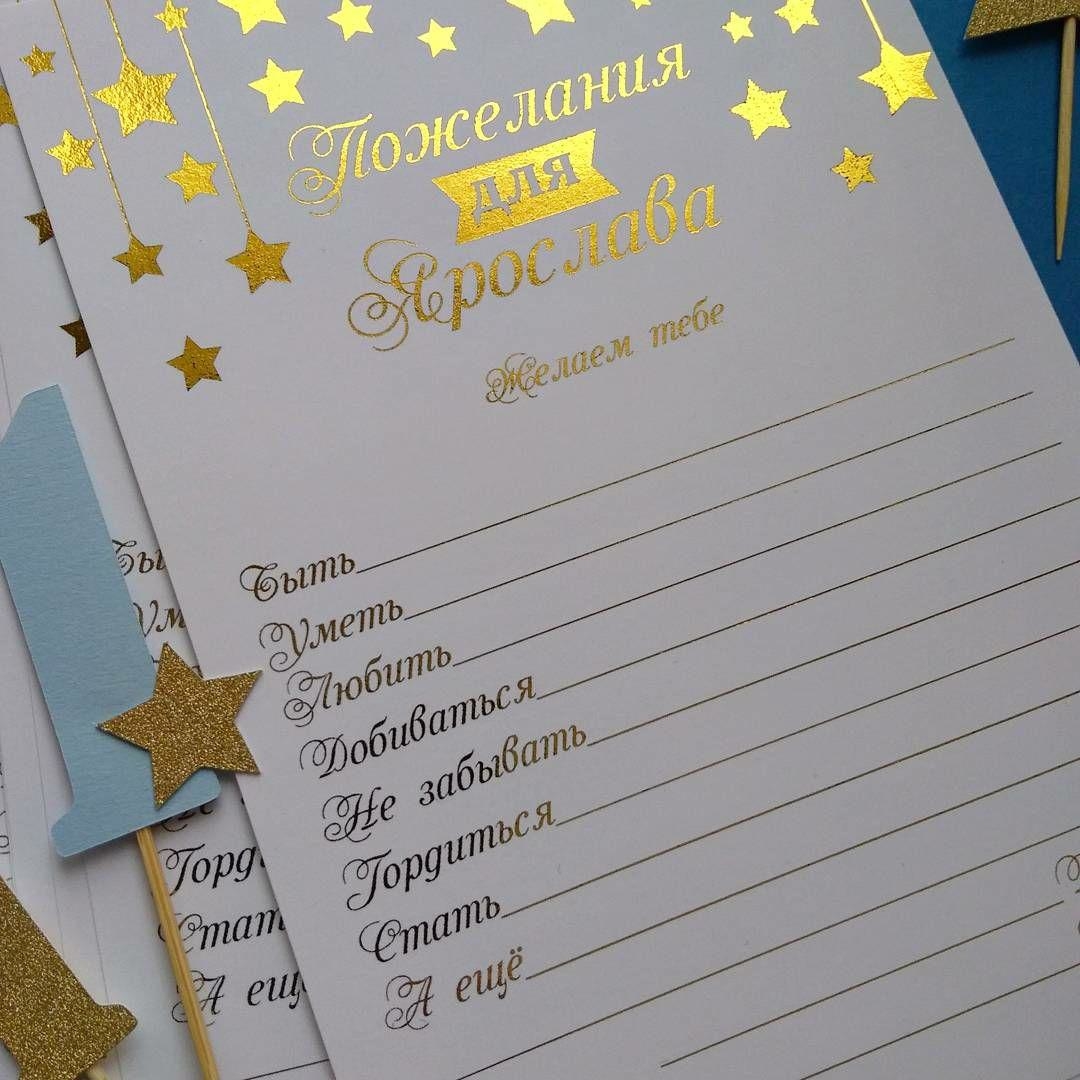 Пожелания
для
Ярослава
Желаем тебе
Быть
Уметь
Любить
Добиваться
Не забывать
Гордиться
Стать
А ещё
Бы
Ум
Горд
Стат
А ещ